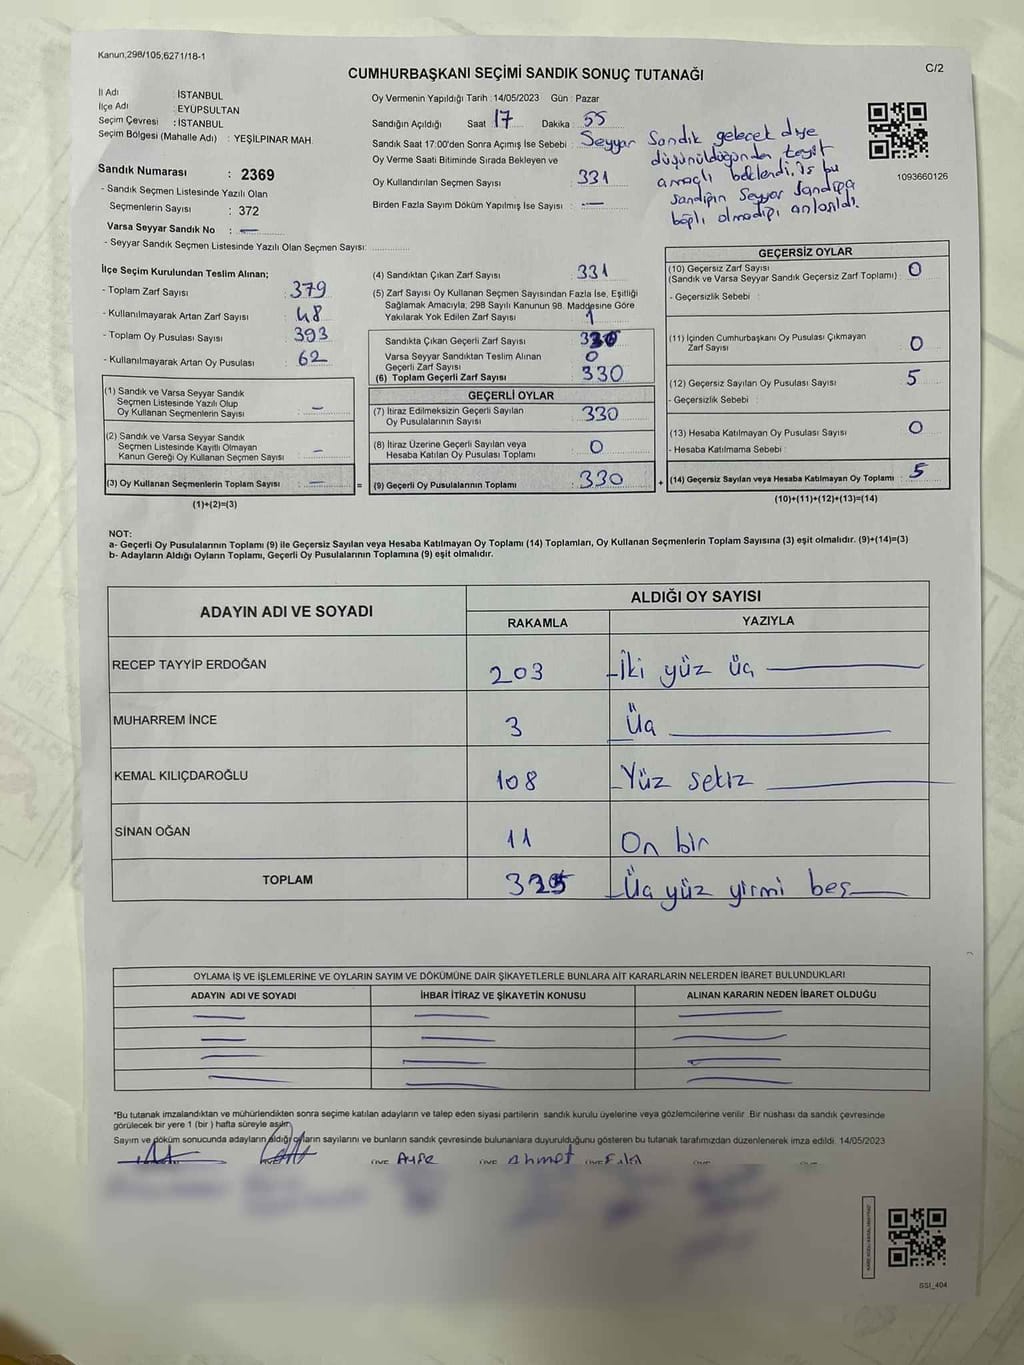 Kanun;298/105;6271/18-1
C/2
CUMHURBAŞKANI SEÇİMİ SANDIK SONUÇ TUTANAĞI
İl Adı : İSTANBUL
İlçe Adı : EYÜPSULTAN
Seçim Çevresi : İSTANBUL
Seçim Bölgesi (Mahalle Adı) : YEŞİLPINAR MAH.
Sandık Numarası : 2369
- Sandık Seçmen Listesinde Yazılı Olan
Seçmenlerin Sayısı : 372
Varsa Seyyar Sandık No : —
- Seyyar Sandık Seçmen Listesinde Yazılı Olan Seçmen Sayısı:
Oy Vermenin Yapıldığı Tarih :14/05/2023 Gün : Pazar
Sandığın Açıldığı Saat 17 Dakika : 55
Sandık Saat 17:00'den Sonra Açımış İse Sebebi : Seyyar Sandık gelecek diye
düşünüldüğünden teyit
amaçlı beklendi. İş bu
sandığın Seyyar Sandığa
bağlı olmadığı anlaşıldı.
Oy Verme Saati Bitiminde Sırada Bekleyen ve
Oy Kullandırılan Seçmen Sayısı : 331
Birden Fazla Sayım Döküm Yapılmış İse Sayısı : —
1093660126
İlçe Seçim Kurulundan Teslim Alınan;
- Toplam Zarf Sayısı : 379
- Kullanılmayarak Artan Zarf Sayısı : 48
- Toplam Oy Pusulası Sayısı : 393
- Kullanılmayarak Artan Oy Pusulası : 62
(1) Sandık ve Varsa Seyyar Sandık
Seçmen Listesinde Yazılı Olup
Oy Kullanan Seçmenlerin Sayısı : —
(2) Sandık ve Varsa Seyyar Sandık
Seçmen Listesinde Kayıtlı Olmayan
Kanun Gereği Oy Kullanan Seçmen Sayısı : —
(3) Oy Kullanan Seçmenlerin Toplam Sayısı : — =
(1)+(2)=(3)
(4) Sandıktan Çıkan Zarf Sayısı : 331
(5) Zarf Sayısı Oy Kullanan Seçmen Sayısından Fazla İse, Eşitliği
Sağlamak Amacıyla, 298 Sayılı Kanunun 98. Maddesine Göre
Yakılarak Yok Edilen Zarf Sayısı : 1
Sandıkta Çıkan Geçerli Zarf Sayısı : 330
Varsa Seyyar Sandıktan Teslim Alınan
Geçerli Zarf Sayısı : 0
(6) Toplam Geçerli Zarf Sayısı : 330
GEÇERLİ OYLAR
(7) İtiraz Edilmeksizin Geçerli Sayılan
Oy Pusulalarının Sayısı : 330
(8) İtiraz Üzerine Geçerli Sayılan veya
Hesaba Katılan Oy Pusulası Toplamı : 0
(9) Geçerli Oy Pusulalarının Toplamı : 330 +
GEÇERSİZ OYLAR
(10) Geçersiz Zarf Sayısı
(Sandık ve Varsa Seyyar Sandık Geçersiz Zarf Toplamı) : 0
- Geçersizlik Sebebi :
(11) İçinden Cumhurbaşkanı Oy Pusulası Çıkmayan
Zarf Sayısı : 0
(12) Geçersiz Sayılan Oy Pusulası Sayısı : 5
- Geçersizlik Sebebi :
(13) Hesaba Katılmayan Oy Pusulası Sayısı : 0
- Hesaba Katılmama Sebebi :
(14) Geçersiz Sayılan veya Hesaba Katılmayan Oy Toplamı : 5
(10)+(11)+(12)+(13)=(14)
NOT:
a- Geçerli Oy Pusulalarının Toplamı (9) ile Geçersiz Sayılan veya Hesaba Katılmayan Oy Toplamı (14) Toplamları, Oy Kullanan Seçmenlerin Toplam Sayısına (3) eşit olmalıdır. (9)+(14)=(3)
b- Adayların Aldığı Oyların Toplamı, Geçerli Oy Pusulalarının Toplamına (9) eşit olmalıdır.
ADAYIN ADI VE SOYADI
ALDIĞI OY SAYISI
RAKAMLA YAZIYLA
RECEP TAYYİP ERDOĞAN 203 İki yüz üç
MUHARREM İNCE 3 Üç
KEMAL KILIÇDAROĞLU 108 Yüz sekiz
SİNAN OĞAN 11 On bir
TOPLAM 325 Üç yüz yirmi beş
OYLAMA İŞ VE İŞLEMLERİNE VE OYLARIN SAYIM VE DÖKÜMÜNE DAİR ŞİKAYETLERLE BUNLARA AİT KARARLARIN NELERDEN İBARET BULUNDUKLARI
ADAYIN ADI VE SOYADI İHBAR İTİRAZ VE ŞİKAYETİN KONUSU ALINAN KARARIN NEDEN İBARET OLDUĞU
*Bu tutanak imzalandıktan ve mühürlendikten sonra seçime katılan adayların ve talep eden siyasi partilerin sandık kurulu üyelerine veya gözlemcilerine verilir. Bir nüshası da sandık çevresinde
görülecek bir yere 1 (bir) hafta süreyle asılır.
Sayım ve döküm sonucunda adayların aldığı oyların sayılarını ve bunların sandık çevresinde bulunanlara duyurulduğunu gösteren bu tutanak tarafımızdan düzenlenerek imza edildi. 14/05/2023
Ayşe Ahmet
SSI_404